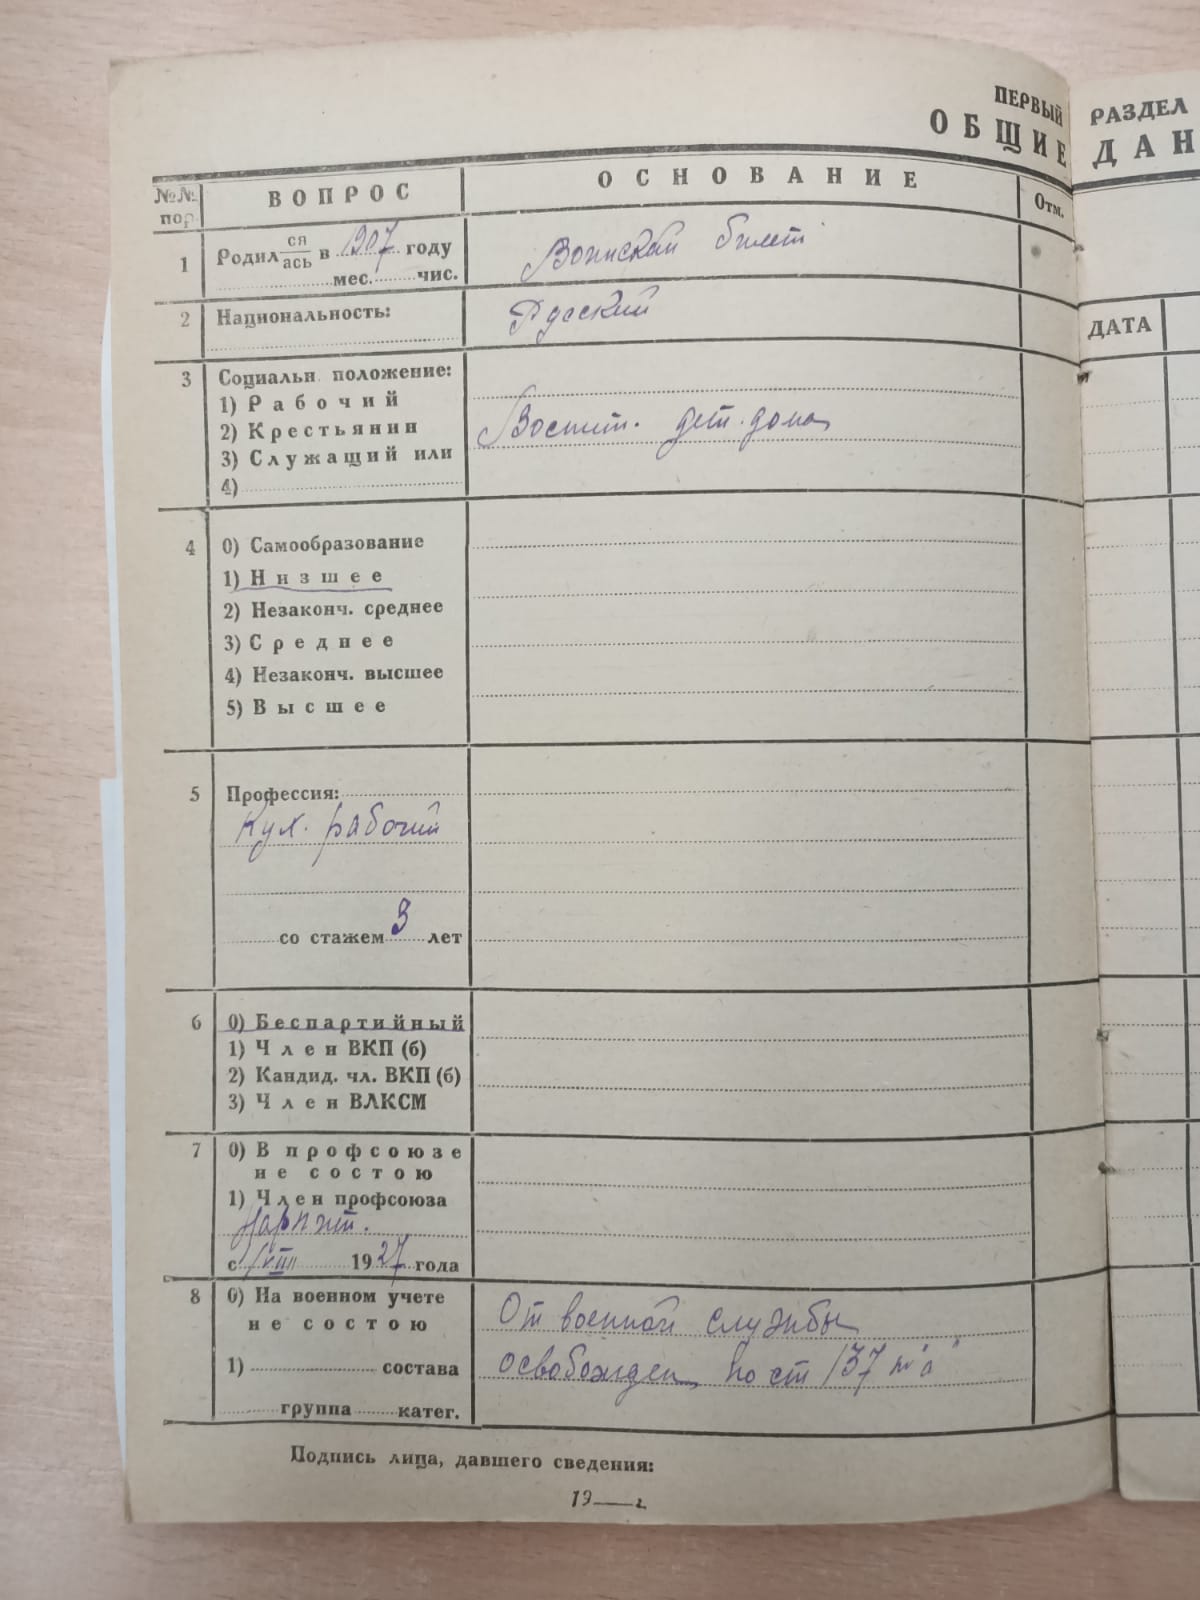 ПЕРВЫЙ РАЗДЕЛ
ОБЩИЕ ДАН
№№ пор. ВОПРОС ОСНОВАНИЕ Отм.
1 Родил ся/ась в 1907 году Воинский билет
мес. чис.
2 Национальность: Русский
ДАТА
3 Социальн. положение:
1) Рабочий
2) Крестьянин Воспит. дет. дома
3) Служащий или
4)
4 0) Самообразование
1) Низшее
2) Незаконч. среднее
3) Среднее
4) Незаконч. высшее
5) Высшее
5 Профессия:
Кух. рабочий
со стажем 3 лет
6 0) Беспартийный
1) Член ВКП (б)
2) Кандид. чл. ВКП (б)
3) Член ВЛКСМ
7 0) В профсоюзе
не состою
1) Член профсоюза
Нарпит.
с 1/VIII 1927 года
8 0) На военном учете От военной службы
не состою
1) состава освобожден по ст 137 п "а"
группа катег.
Подпись лица, давшего сведения:
19 г